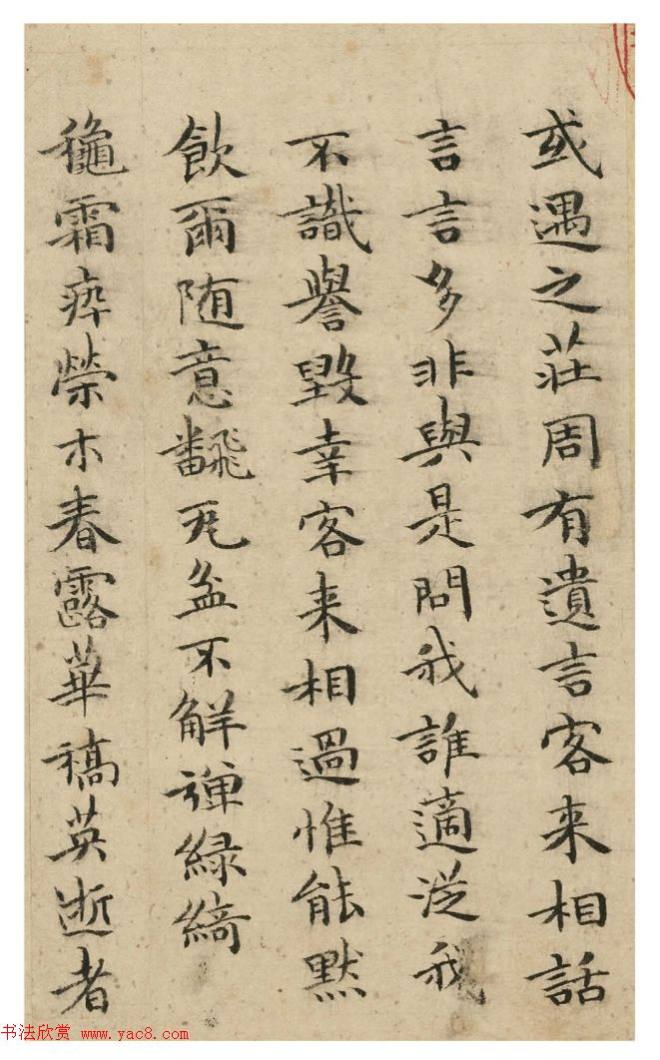 或遇之莊周有遺言客来相話
言言多非與是問我誰適從我
不識譽毀幸客来相過惟能黙
飲爾随意飜瓦盆不解弾緑綺
龝霜瘁榮木春露華稿英逝者
书法欣赏 www.yac8.com